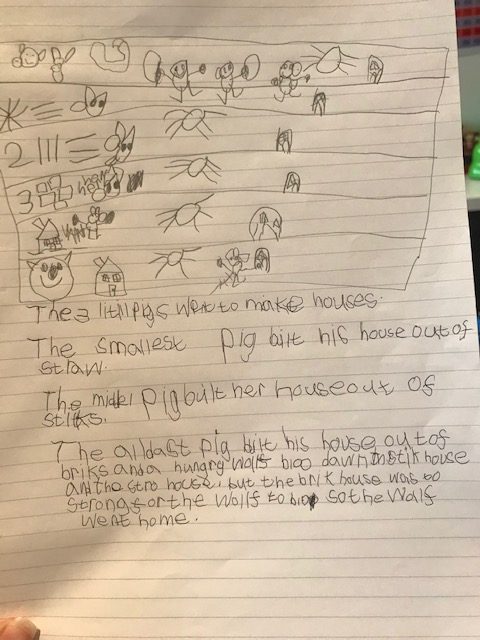 3
2
3
The 3 litll pigs wet to make houses.
The smallest pig bilt his house out of
straw.
The midel pig built her house out of
stiks.
The alldast pig bilt his house out of
briks and a hungry wolfs bloo dawn
house
and the stro house. but the brik house was to
strong for the wolfs to bloo so the wolf
went home.